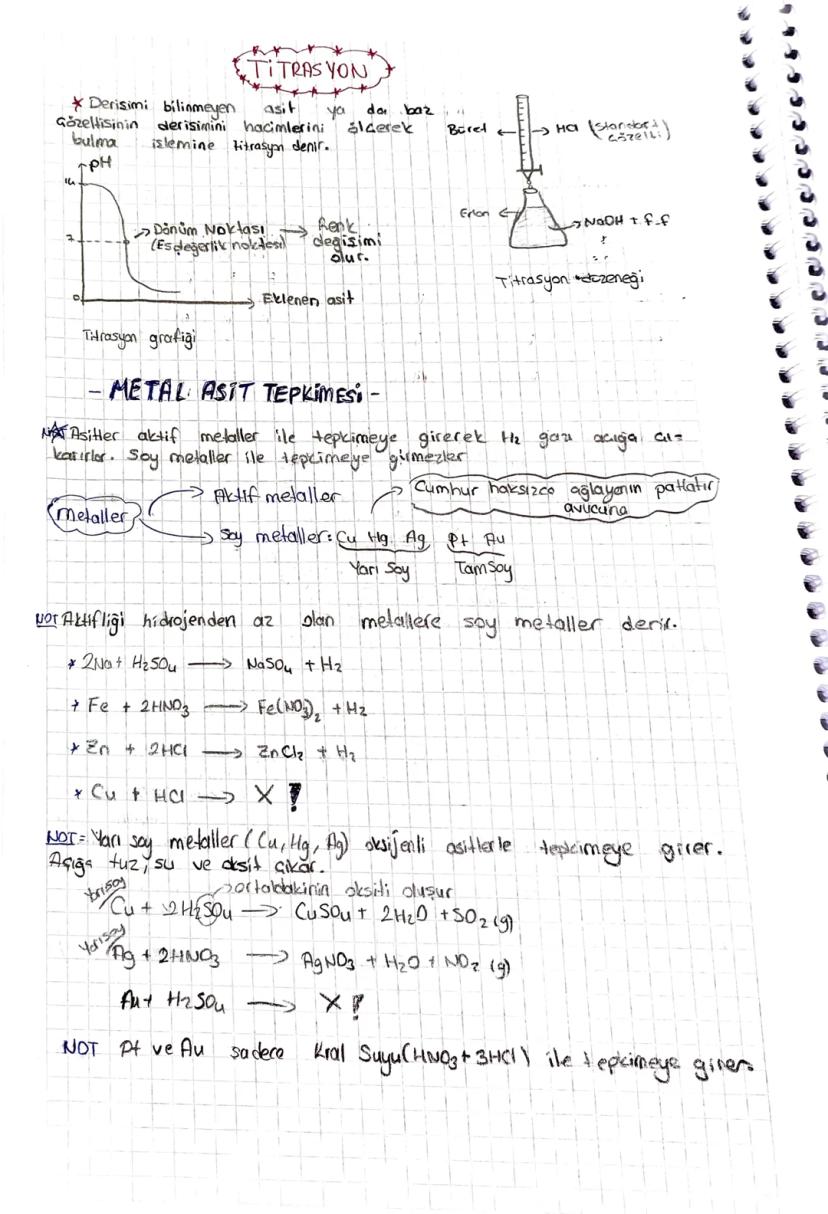 TİTRASYON
* Derisimi bilinmeyen asit ya da baz
çözeltisinin derisimini hacimlerini ölçerek
bulma islemine titrasyon denir.
pH
14
7
0
Dönüm Noktası → Renk
(Esdeğerlik noktası) degisimi
olur.
Eklenen asit
Titrasyon grafiği
Büret ← → HCl (standart
çözelti)
Erlen
NaOH + f-f
Titrasyon düzeneği
- METAL ASİT TEPKİMESİ -
Asitler aktif metaller ile tepkimeye girerek H₂ gazı açığa çı-
karırlar. Soy metaller ile tepkimeye girmezler
Metaller
Aktif metaller
Cumhur haksızca ağlayanın patlatır
avucuna
Soy metaller: Cu Hg Ag Pt Au
Yarı Soy Tam Soy
NOT Aktifliği hidrojenden az olan metallere soy metaller denir.
* 2Na + H₂SO₄ → NaSO₄ + H₂
* Fe + 2HNO₃ → Fe(NO₃)₂ + H₂
* Zn + 2HCl → ZnCl₂ + H₂
* Cu + HCl → X !
NOT = Yarı soy metaller (Cu, Hg, Ag) oksijenli asitlerle tepkimeye girer.
Açığa tuz, su ve oksit çıkar.
→ ortadakinin oksiti oluşur
Yarısoy
Cu + 2H₂SO₄ → CuSO₄ + 2H₂O + SO₂ (g)
Yarısoy
Ag + 2HNO₃ → AgNO₃ + H₂O + NO₂ (g)
Au + H₂SO₄ → X !
NOT Pt ve Au sadece Kral Suyu (HNO₃ + 3HCl) ile tepkimeye girer.